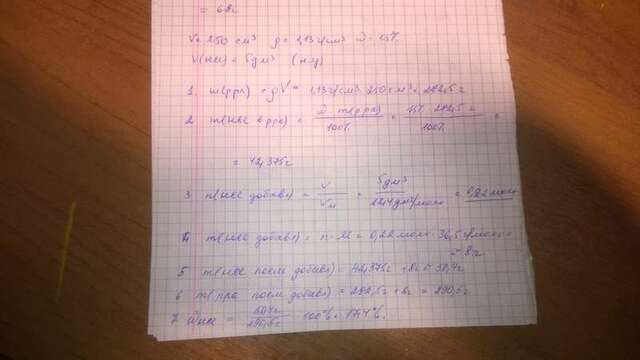 = 68г
V = 250 см³ ρ = 1,13 г/см³ ω = 15%
V(HCl) = 5 дм³ (н.у)
1. m(рра) = ρV = 1,13 г/см³ 250 см³ = 282,5 г
2 m(HCl в рра) = ω m(рра) / 100% = 15% · 282,5 г / 100% =
= 42,375г
3 n(HCl добавл) = V / Vм = 5 дм³ / 22,4 дм³/моль = 0,22 моль
4 m(HCl добавл) = n · M = 0,22 моль · 36,5 г/моль =
= 8г
5 m(HCl после добавл) = 42,375г + 8г = 50,4г
6 m(рра после добавл) = 282,5г + 8г = 290,5г
7 ωHCl = 50,4г / 290,5г · 100% = 17,4%.